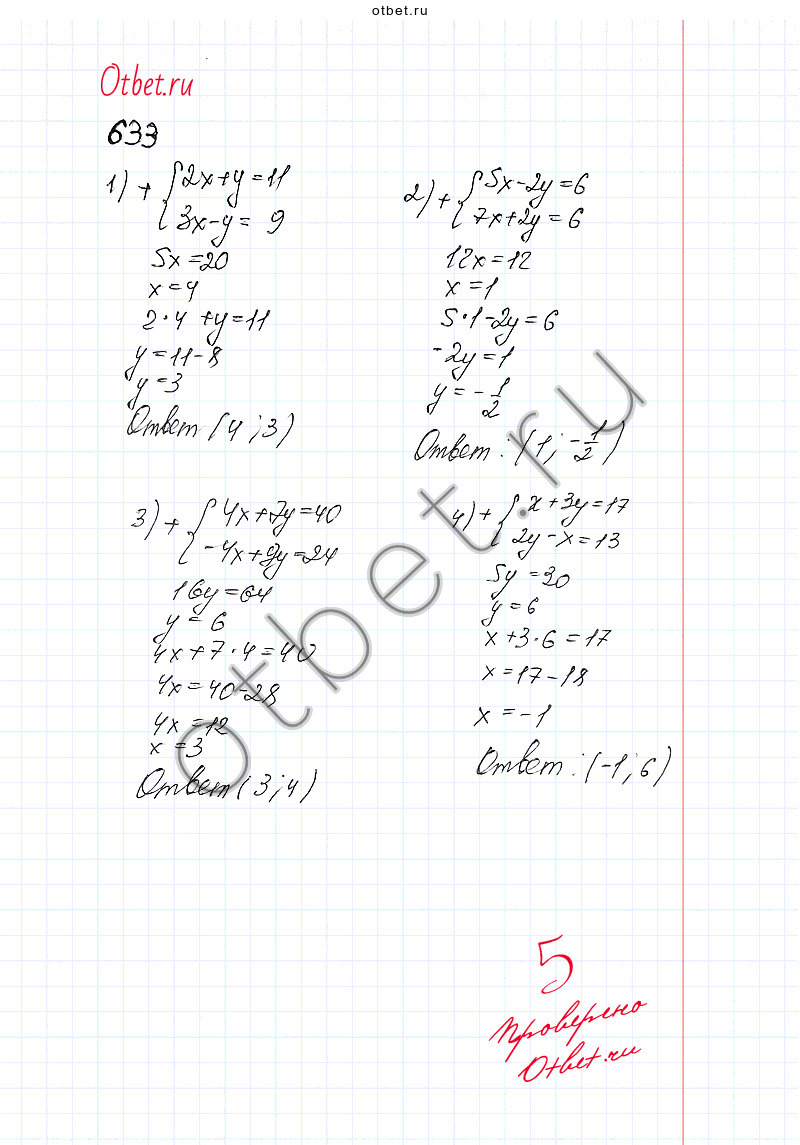 otbet.ru
Otbet.ru
633
1) + { 2x+y=11
3x-y= 9
5x=20
x=4
2·4 +y=11
y=11-8
y=3
Ответ (4;3)
2) + { 5x-2y=6
7x+2y=6
12x=12
x=1
5·1-2y=6
-2y=1
y=-1/2
Ответ: (1; -1/2)
3) + { 4x+7y=40
-4x+9y=24
16y=64
y= 6
4x+7·4=40
4x=40-28
4x=12
x=3
Ответ (3;4)
4) + { x+3y=17
2y-x=13
5y=30
y=6
x+3·6=17
x=17-18
x=-1
Ответ: (-1;6)
otbet.ru
5
Проверено
Otbet.ru